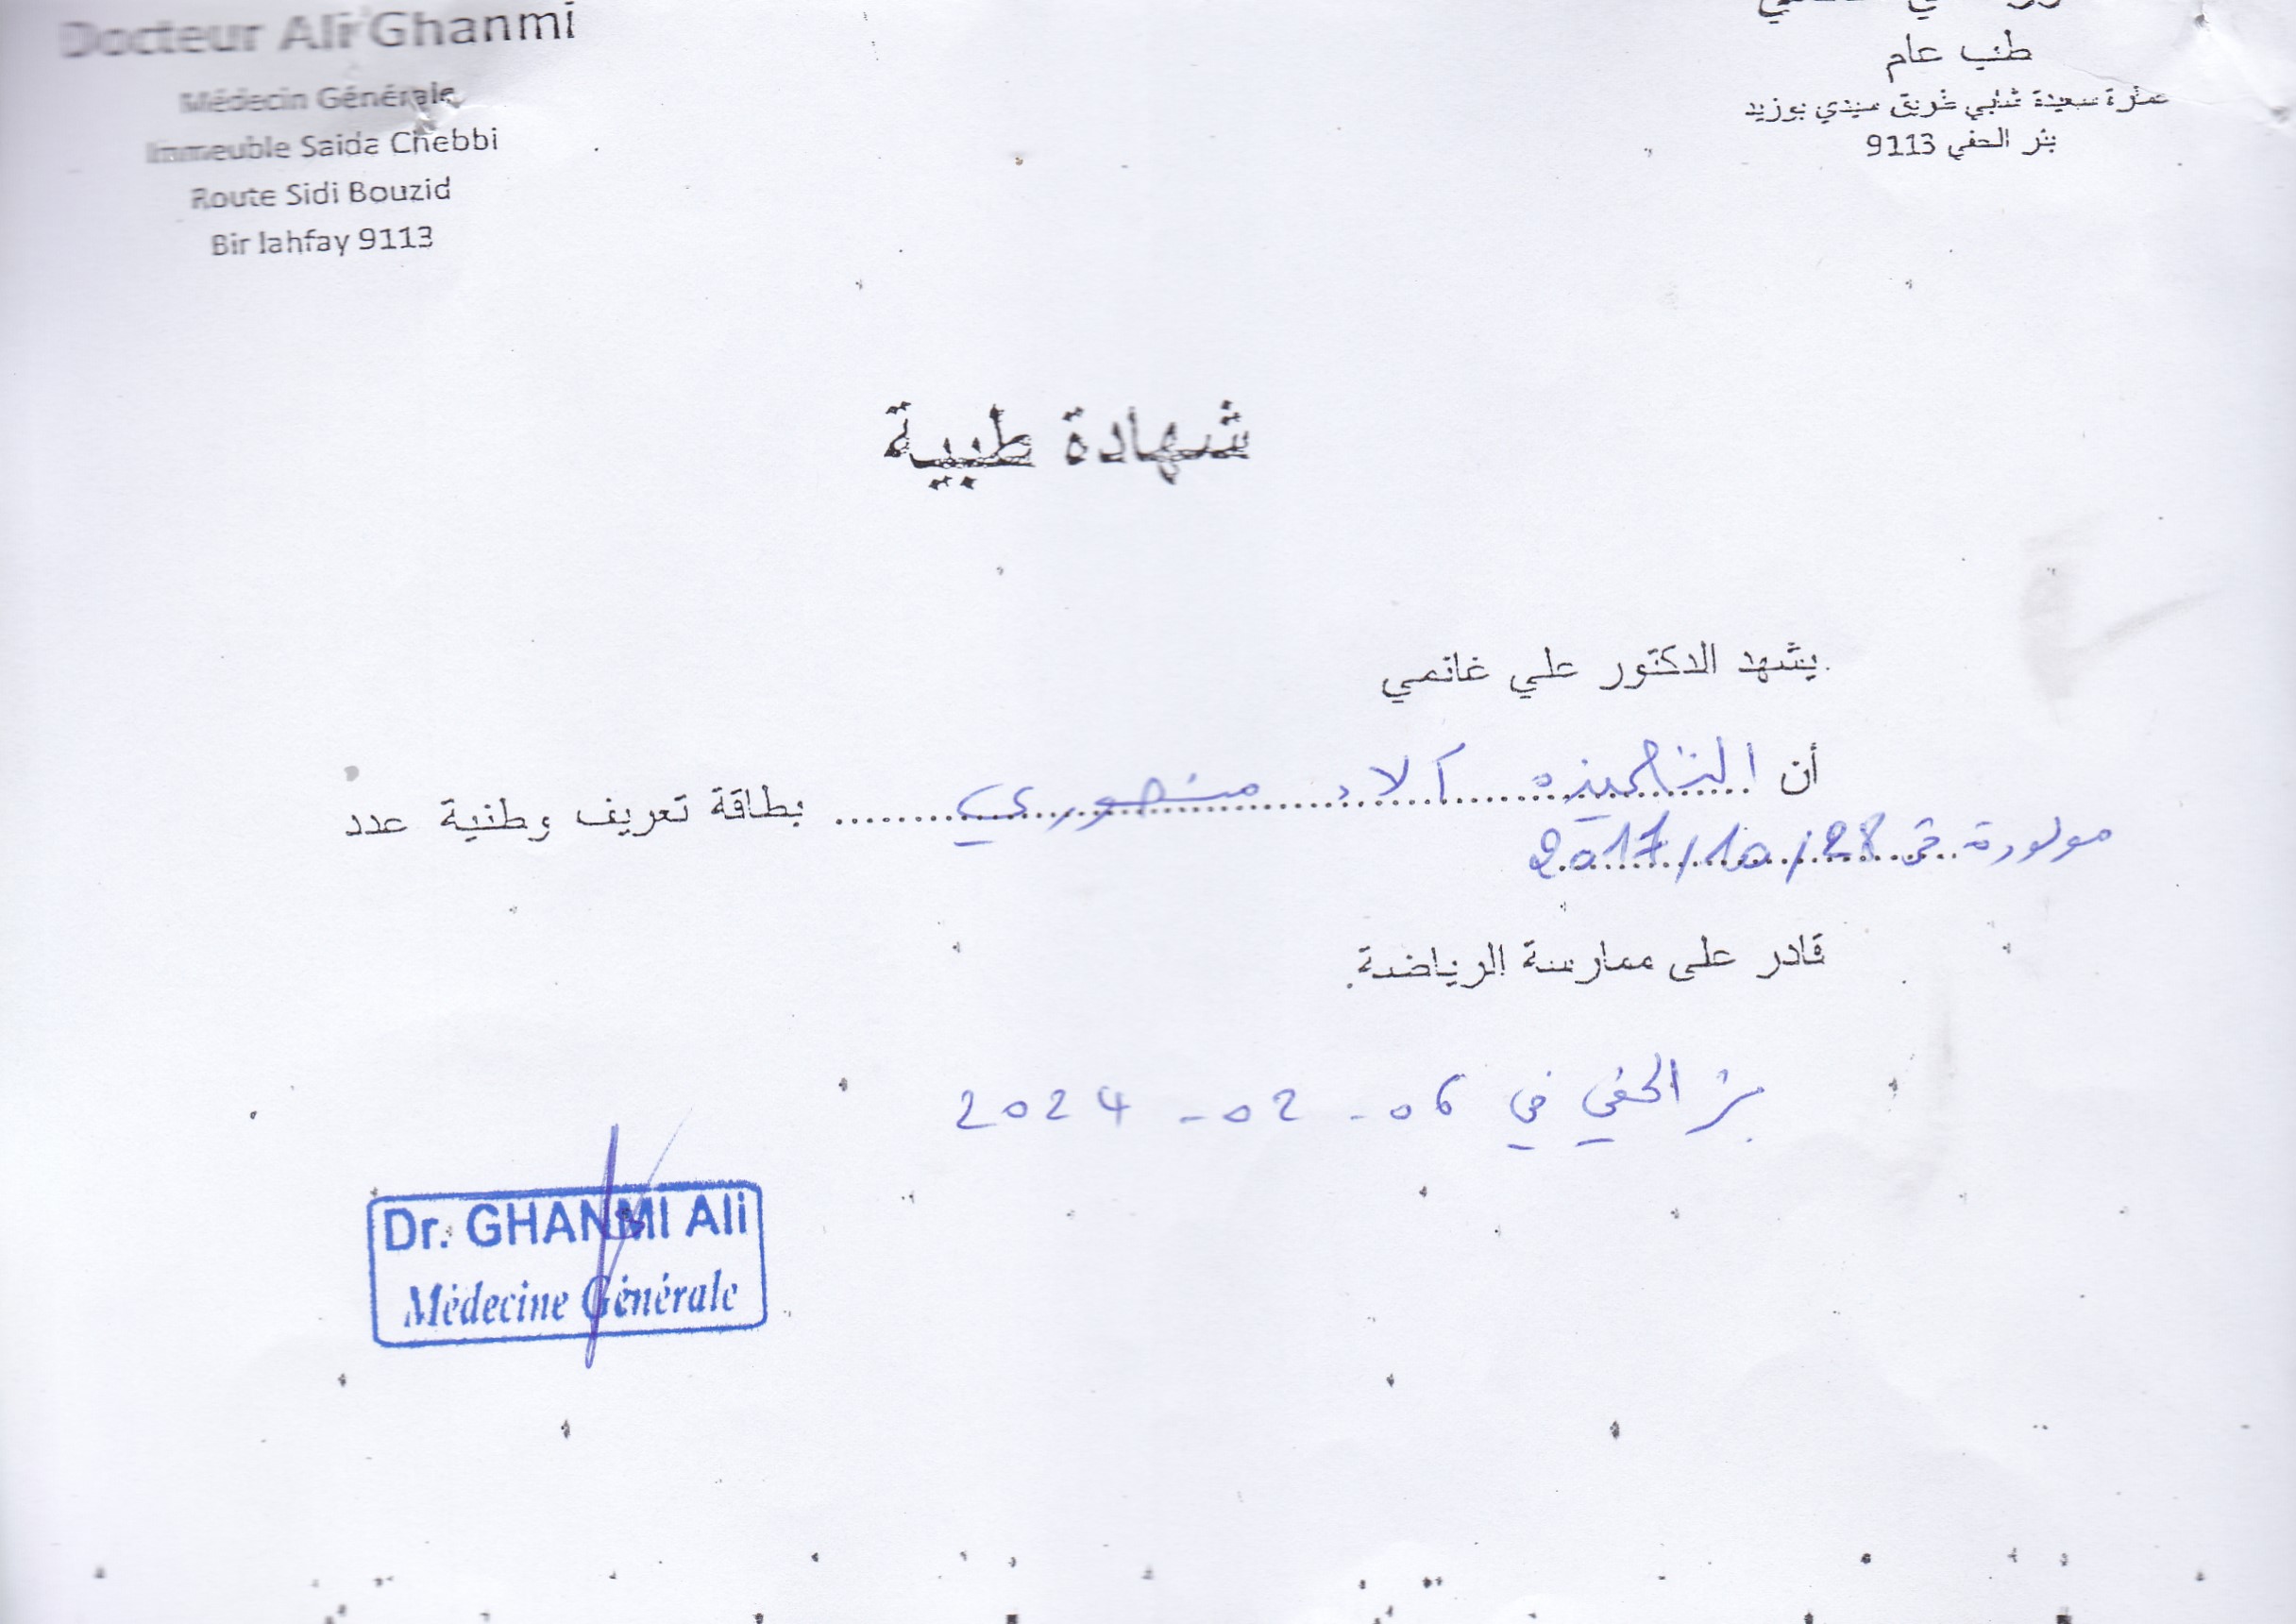 Docteur Ali Ghanmi
Médecin Générale
Immeuble Saida Chebbi
Route Sidi Bouzid
Bir lahfay 9113
طب عام
عمارة سعيدة شابي طريق سيدي بوزيد
بئر الحفي 9113
شهادة طبية
يشهد الدكتور علي غانمي
أن التلميذه آلاء منصوري بطاقة تعريف وطنية عدد
مولودة في 28/10/2017
قادر على ممارسة الرياضة.
بئر الحفي في 06 - 02 - 2024
Dr. GHANMI Ali
Médecine Générale